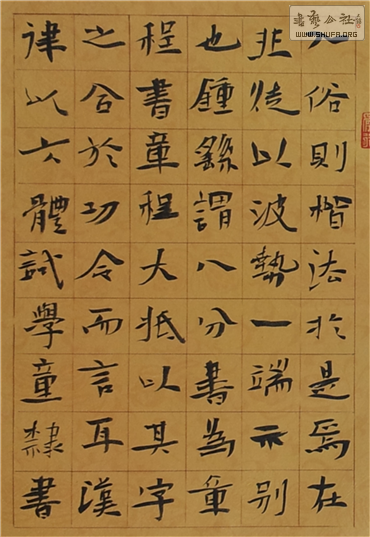 俗則楷法於是焉在
非徒以波勢一端示別
也鍾繇謂八分書為章
程書章程大抵以其字
之合於功令而言耳漢
律以六體試學童隸書
書藝公社
WWW.SHUFA.ORG